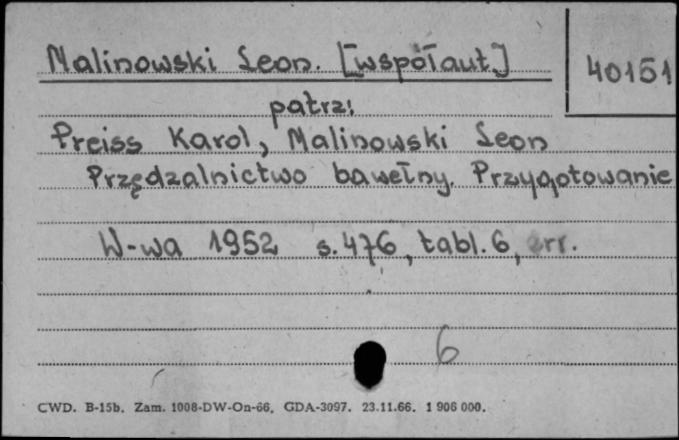 Malinowski Leon. [współaut.]
40151
patrz:
Preiss Karol, Malinowski Leon
Przędzalnictwo bawełny. Przygotowanie
W-wa 1952 s. 476, tabl. 6, err.
6
CWD. B-15b. Zam. 1008-DW-On-66. GDA-3097. 23.11.66. 1 906 000.